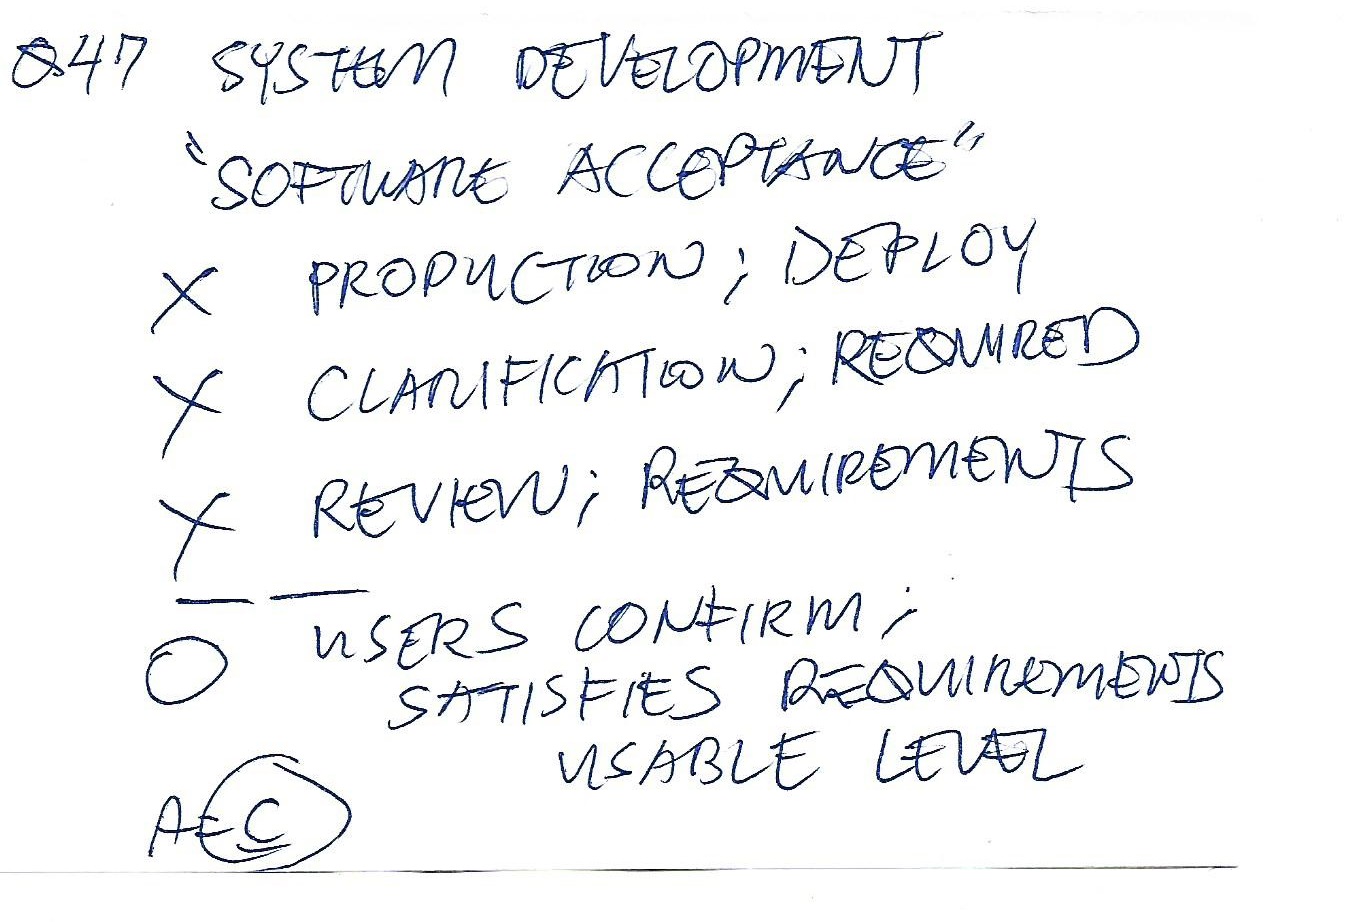 Q47 SYSTEM DEVELOPMENT
"SOFTWARE ACCEPTANCE"
X PRODUCTION; DEPLOY
X CLARIFICATION; REQUIRED
X REVIEW; REQUIREMENTS
O USERS CONFIRM;
SATISFIES REQUIREMENTS
USABLE LEVEL
A= C